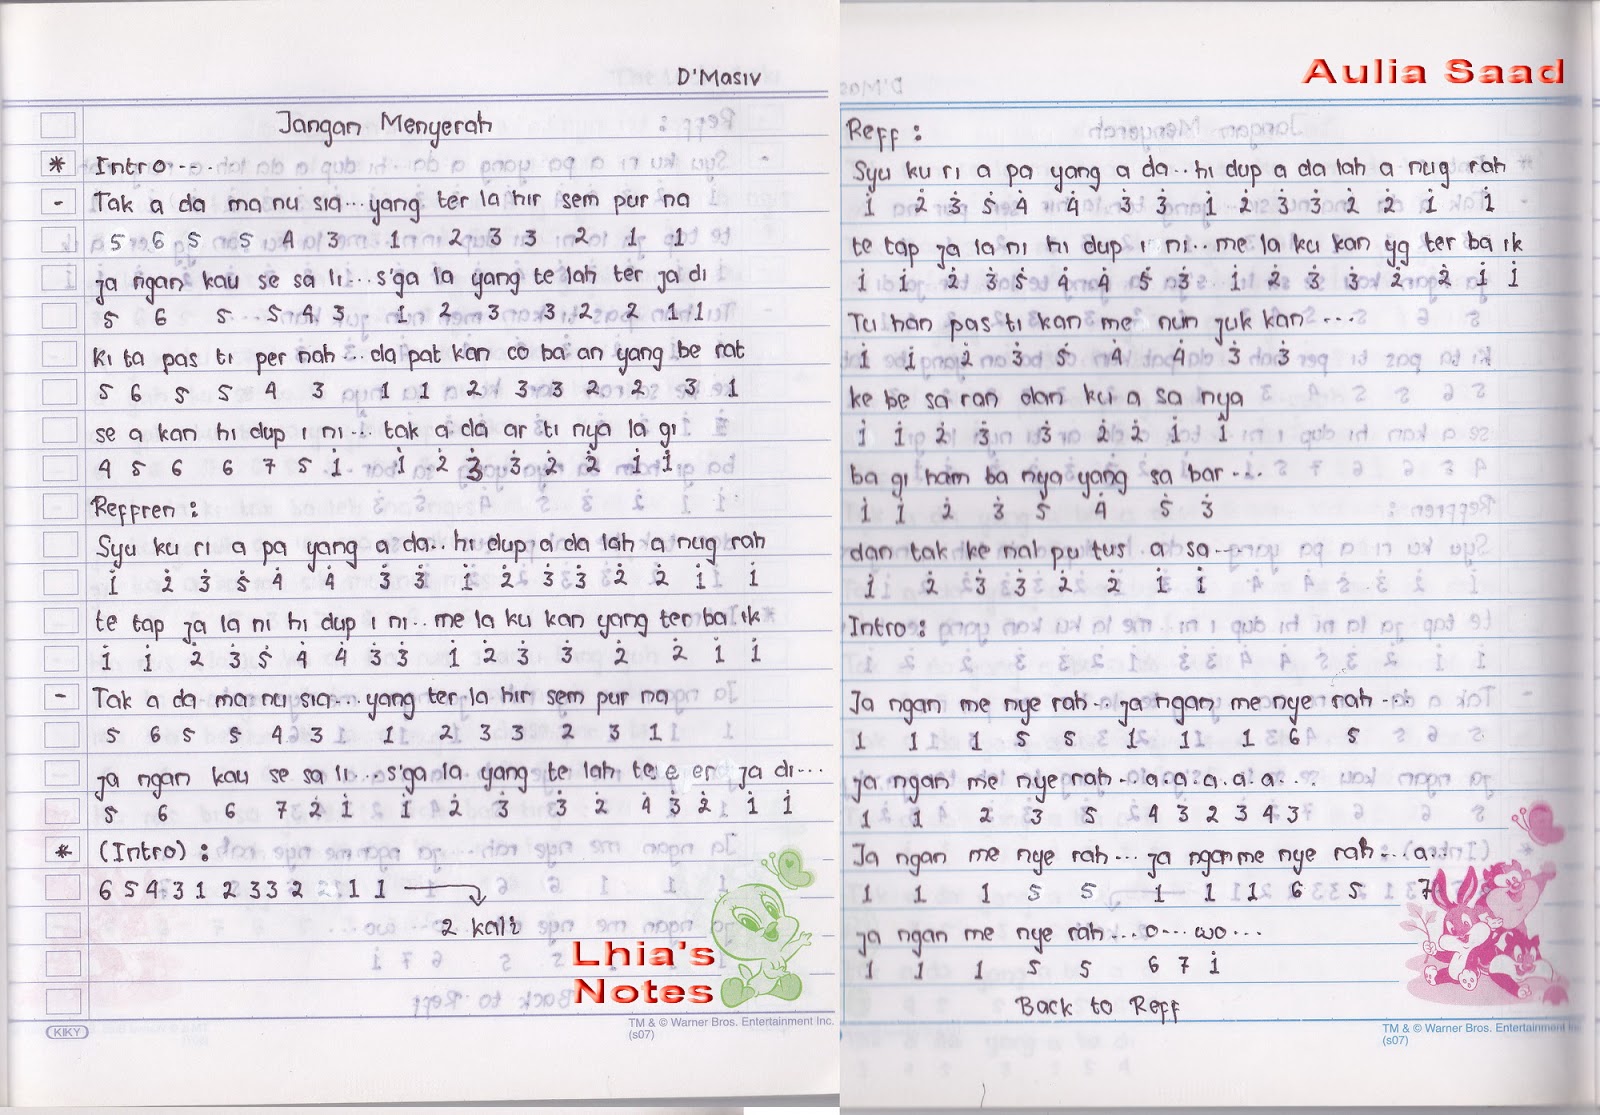 D'Masiv
Jangan Menyerah
* Intro....
- Tak a da ma nu sia...yang ter la hir sem pur na
5 6 5 5 4 3 1 2 3 3 2 1 1
ja ngan kau se sa li...s'ga la yang te lah ter ja di
5 6 5 5 4 3 1 2 3 3 2 2 1 1
Ki ta pas ti per nah...da pat kan co ba an yang be rat
5 6 5 5 4 3 1 1 2 3 3 2 2 3 1
se a kan hi dup i ni... tak a da ar ti nya la gi
4 5 6 6 7 5 i̇ i̇ 2̇ 3̇ 3̇ 2̇ 2̇ i̇ i̇
Reffren :
Syu ku ri a pa yang a da..hi dup a da lah a nug rah
1̇ 2̇ 3̇ 5̇ 4̇ 4̇ 3̇ 3̇ 1̇ 2̇ 3̇ 3̇ 2̇ 2̇ 1̇ 1̇
te tap ja la ni hi dup i ni..me la ku kan yang ter ba ik
1̇ 1̇ 2̇ 3̇ 5̇ 4̇ 4̇ 3̇ 3̇ 1̇ 2̇ 3̇ 3̇ 2̇ 2̇ 1̇ 1̇
- Tak a da ma nu sia...yang ter la hir sem pur na
5 6 5 5 4 3 1 2 3 3 2 3 1
ja ngan kau se sa li...s'ga la yang te lah te e er ja di...
5 6 6 7 2̇ 1̇ 1̇ 2̇ 3̇ 3̇ 2̇ 4̇ 3̇ 2̇ 1̇ 1̇
* (Intro) :
6 5 4 3 1 2 3 3 2 1 1
2 kali
Lhia's
Notes
KIKY
TM & © Warner Bros. Entertainment Inc.
(s07)
Aulia Saad
Reff :
Syu ku ri a pa yang a da..hi dup a da lah a nug rah
1̇ 2̇ 3̇ 5̇ 4̇ 4̇ 3̇ 3̇ 1̇ 2̇ 3̇ 3̇ 2̇ 2̇ 1̇ 1̇
te tap ja la ni hi dup i ni..me la ku kan yg ter ba ik
1̇ 1̇ 2̇ 3̇ 5̇ 4̇ 4̇ 5̇ 3̇ 1̇ 2̇ 3̇ 3̇ 2̇ 2̇ 1̇ 1̇
Tu han pas ti kan me nun juk kan ...
1̇ 1̇ 2̇ 3̇ 5̇ 4̇ 4̇ 3̇ 3̇
ke be sa ran dan ku a sa nya
1̇ 1̇ 2̇ 3̇ 3̇ 2̇ 2̇ 1̇ 1̇
ba gi ham ba nya yang sa bar ....
1̇ 1̇ 2̇ 3̇ 5̇ 4̇ 5̇ 3̇
dan tak ke nal pu tus a sa....
1̇ 2̇ 3̇ 3̇ 2̇ 2̇ 1̇ 1̇
Intro :
Ja ngan me nye rah.. ja ngan me nye rah ...
1 1 1 5 5 1 1 1 1 6 5
ja ngan me nye rah..a.a.a.a.a..
1 1 2 3 5 4 3 2 3 4 3
Ja ngan me nye rah... ja ngan me nye rah...a..
1 1 1 5 5 1 1 1 6 5 7
ja ngan me nye rah...o...wo...
1 1 1 5 5 6 7 1̇
Back to Reff
TM & © Warner Bros. Entertainment In
(s07)